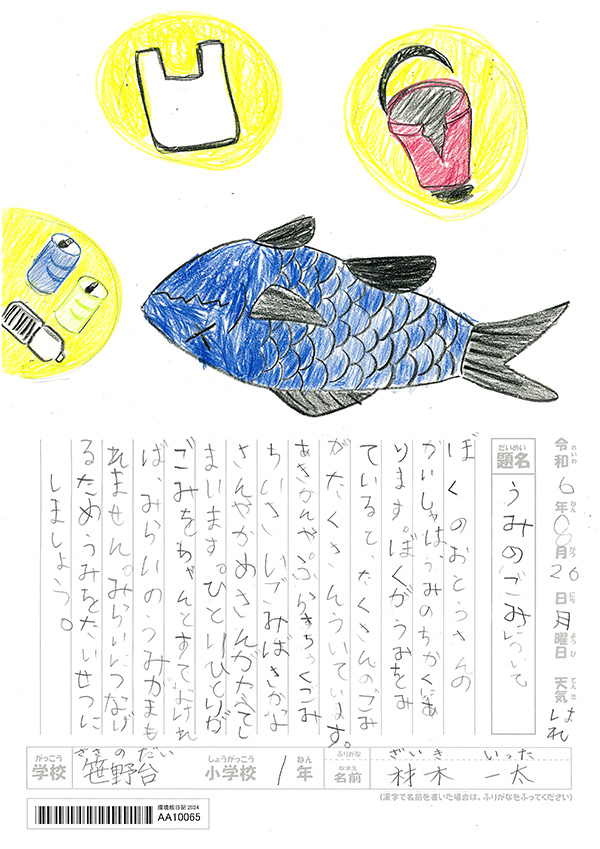 令和6年8月26日月曜日 天気 はれ
れいわ ねん がつ にち ようび てんき
だいめい
題名 うみのごみについて
ぼくのおとうさんの
かいしゃは、うみのちかくにあ
ります。ぼくがうみをみ
ていると、たくさんのごみ
がたくさんういています。
あきかんや、ぷらすちっくごみ
ちいさいごみばさかな
さんやかめさんがたべてし
まいます。ひとりひとりが
ごみをちゃんとすてなけれ
ば、みらいのうみがまも
れません。みらいにつなげ
るためうみをたいせつに
しましょう。
がっこう ささのだい しょうがっこう ねん ふりがな ざいき いった
学校 笹野台 小学校 1年 なまえ 名前 材木 一太
(漢字で名前を書いた場合は、ふりがなをふってください)
環境絵日記2024
AA10065